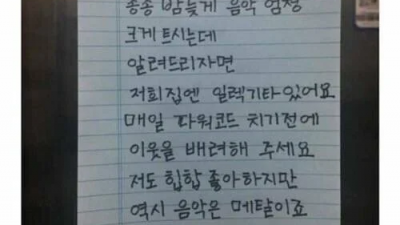 종종 밤늦게 음악 엄청
크게 트시는데
알려드리자면
저희집엔 일렉기타있어요
매일 파워코드 치기전에
이웃을 배려해 주세요
저도 힙합 좋아하지만
역시 음악은 메탈이죠